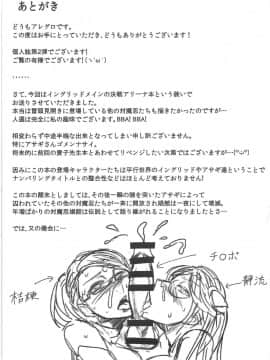 あとがき
どうもアレグロです。
この度はお手にとっていただき、どうもありがとうございます!
個人総第2弾でございます!
ご覧の有様でございます!(ヽ´ω`)
……
さて、今回はイングリッドメインの決戦アリーナ本という装いで
お送りさせていただきました。
本当は冒頭見開きに登場している他の対魔忍たちも描きたかったのですが…
人選は完全に私の趣味でございます。BBA! BBA!
相変わらず中途半端な出来となってしまい申し訳ございません。
特にアサギさんゴメンナサイ。
将来的に前回の貴子先生本とあわせてリベンジしたい次第ではございますが…
因みにこの本の登場キャラクターたちは平行世界のイングリッドやアサギ達ということで
ナンバリングタイトルとの整合性などはほとんど考えておりません!
この本の顛末としましては、その後一瞬の隙を突いたアサギによって
囚われていたその他の対魔忍たちが一斉に開放され娼館は一夜にして壊滅。
年増ばかりの対魔忍娼館は伝説として語り継がれることになりましたとさ…
では、又の機会に…
チロポ
静流